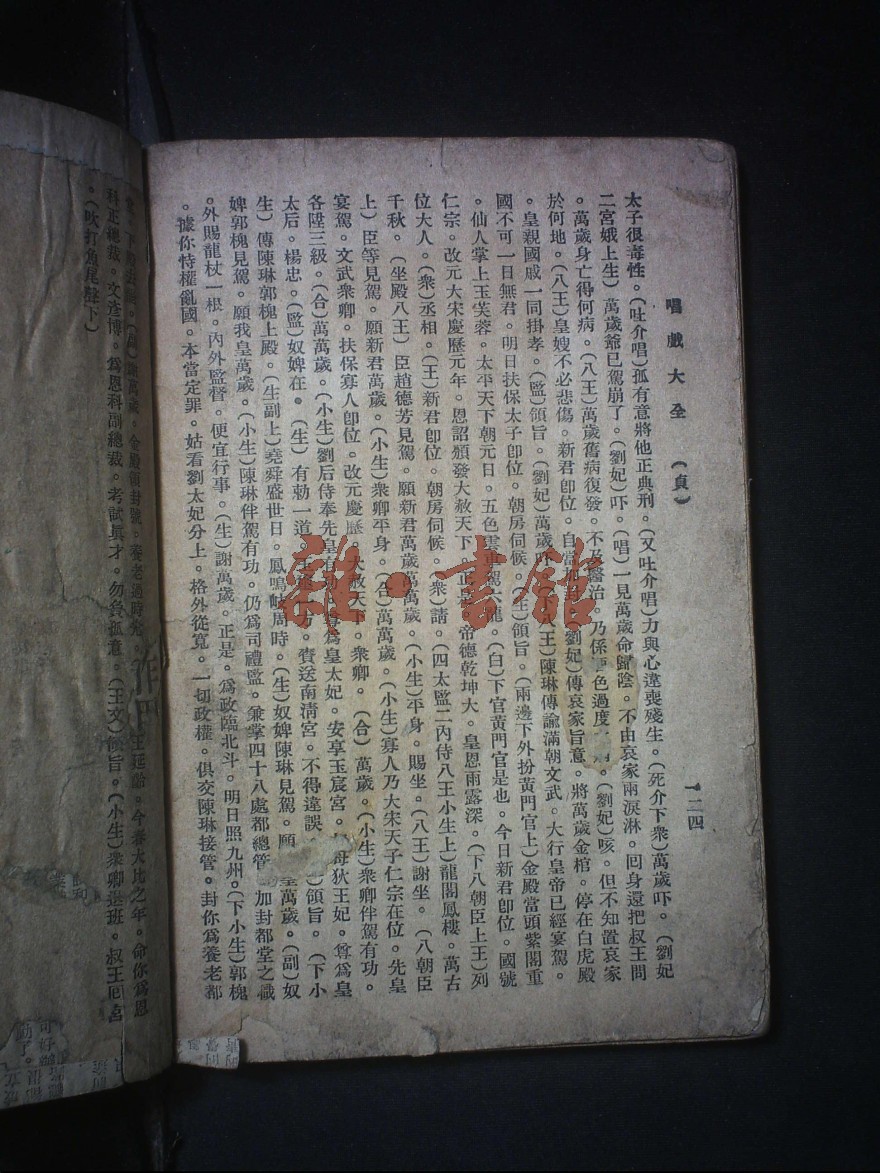 唱戲大全 (貞)
一二四
太子很毒性。(吐介唱)孤有意將他正典刑。(又吐介唱)力與心違喪殘生。(死介下衆)萬歲吓。(劉妃
二宮娥上生)萬歲爺已駕崩了。(劉妃)吓。(唱)一見萬歲命歸陰。不由哀家兩淚淋。回身還把叔王問
。萬歲身亡得何病。(八王)萬歲舊病復發。不及醫治。乃係色過度。(劉妃)咳。但不知置哀家
於何地。(八王)皇嫂不必悲傷。新君卽位。自當加劉妃)傳哀家旨意。將萬歲金棺。停在白虎殿
。皇親國戚一同掛孝。(監)領旨。(劉妃)萬歲吓八王)陳琳傳諭滿朝文武。大行皇帝已經宴駕。
國不可一日無君。明日扶保太子卽位。朝房伺候。(生)領旨。(兩邊下外扮黃門官上)金殿當頭紫閣重
。仙人掌上玉芙蓉。太平天下朝元日。五色雲車駕六龍。(白)下官黃門官是也。今日新君卽位。國號
仁宗。改元大宋慶歷元年。恩詔頒發大赦天下。正是。帝德乾坤大。皇恩雨露深。(下八朝臣上王)列
位大人。(衆)丞相。(王)新君卽位。朝房伺候。(衆)請。(四太監二內侍八王小生上)龍閣鳳樓。萬古
千秋。(坐殿八王)臣趙德芳見駕。願新君萬歲萬萬歲。(小生)平身。賜坐。(八王)謝坐。(八朝臣
上)臣等見駕。願新君萬歲。(小生)衆卿平身。(合)萬萬歲。(小生)寡人乃大宋天子仁宗在位。先皇
宴駕。文武衆卿。扶保寡人卽位。改元慶歷。大赦天下。衆卿。(合)萬歲。(小生)衆卿伴駕有功。
各陞三級。(合)萬萬歲。(小生)劉后侍奉先皇有功。尊爲皇太妃。安享玉宸宮。母狄王妃。尊爲皇
太后。楊忠。(監)奴婢在。(生)有勅一道。賚送南淸宮。不得違誤領旨。(下小
生)傳陳琳郭槐上殿。(生副上)堯舜盛世日。鳳鳴岐周時。(生)奴婢陳琳見駕。願皇萬歲。(副)奴
婢郭槐見駕。願我皇萬歲。(小生)陳琳伴駕有功。仍爲司禮監。兼掌四十八處都總管加封都堂之職
。外賜龍杖一根。內外監督。便宜行事。(生)謝萬歲。正是。爲政臨北斗。明日照九州。(下小生)郭槐
。據你恃權亂國。本當定罪。姑看劉太妃分上。格外從寬。一切政權。俱交陳琳接管。封你爲養老都
謝萬歲。金殿領封號。養老過時光。王延齡。今春大比之年。命你爲恩
科正總裁。文彥博。爲恩科副總裁。考試眞才。勿負孤意。(王文)領旨。(小生)衆卿退班。叔王回宮
。(吹打魚尾聲下)
雜·書館